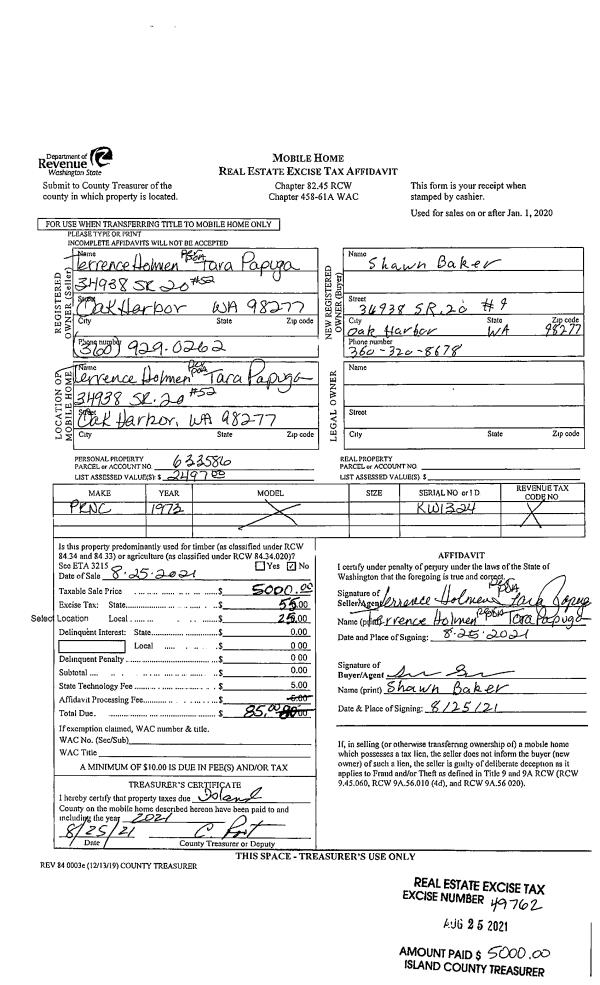 Department of
Revenue
Washington State
Submit to County Treasurer of the
county in which property is located.
MOBILE HOME
REAL ESTATE EXCISE TAX AFFIDAVIT
Chapter 82.45 RCW
Chapter 458-61A WAC
This form is your receipt when
stamped by cashier.
Used for sales on or after Jan. 1, 2020
FOR USE WHEN TRANSFERRING TITLE TO MOBILE HOME ONLY
PLEASE TYPE OR PRINT
INCOMPLETE AFFIDAVITS WILL NOT BE ACCEPTED
REGISTERED
OWNER (Seller)
Name
Terrence Holmen Tara Papuga
34938 SR. 20 #52
Street
Oak Harbor WA 98277
City State Zip code
Phone number
(360) 929.0262
NEW REGISTERED
OWNER (Buyer)
Name
Shawn Baker
Street
34938 SR.20 #9
City State Zip code
Oak Harbor WA 98277
Phone number
360-320-8678
LOCATION OF
MOBILE HOME
Name
Terrence Holmen Tara Papuga
34938 SR. 20 #52
Street
Oak Harbor, WA 98277
City State Zip code
LEGAL OWNER
Name
Street
City State Zip code
PERSONAL PROPERTY
PARCEL or ACCOUNT NO. 633586
LIST ASSESSED VALUE(S): $ 2497.00
REAL PROPERTY
PARCEL or ACCOUNT NO.
LIST ASSESSED VALUE(S): $
MAKE YEAR MODEL SIZE SERIAL NO or I D REVENUE TAX CODE NO
PRNC 1973 KW1324
Is this property predominantly used for timber (as classified under RCW
84.34 and 84.33) or agriculture (as classified under RCW 84.34.020)?
See ETA 3215 Yes ✓ No
Date of Sale 8.25.2021
Taxable Sale Price $ 5000.00
Excise Tax: State $ 55.00
Select Location Local $ 25.00
Delinquent Interest: State $ 0.00
Local $ 0 00
Delinquent Penalty $ 0.00
Subtotal $ 0.00
State Technology Fee $ 5.00
Affidavit Processing Fee $
Total Due $ 85.00
If exemption claimed, WAC number & title.
WAC No. (Sec/Sub)
WAC Title
A MINIMUM OF $10.00 IS DUE IN FEE(S) AND/OR TAX
AFFIDAVIT
I certify under penalty of perjury under the laws of the State of
Washington that the foregoing is true and correct.
Signature of
Seller/Agent Terrence Holmen Tara Papuga
Name (print) Terrence Holmen Tara Papuga
Date and Place of Signing: 8.25.2021
Signature of
Buyer/Agent
Name (print) Shawn Baker
Date & Place of Signing: 8/25/21
If, in selling (or otherwise transferring ownership of) a mobile home
which possesses a tax lien, the seller does not inform the buyer (new
owner) of such a lien, the seller is guilty of deliberate deception as it
applies to Fraud and/or Theft as defined in Title 9 and 9A RCW (RCW
9.45.060, RCW 9A.56.010 (4d), and RCW 9A.56 020).
TREASURER'S CERTIFICATE
I hereby certify that property taxes due Island
County on the mobile home described hereon have been paid to and
including the year 2021
8/25/21
Date County Treasurer or Deputy
THIS SPACE - TREASURER'S USE ONLY
REV 84 0003e (12/13/19) COUNTY TREASURER
REAL ESTATE EXCISE TAX
EXCISE NUMBER 49762
AUG 25 2021
AMOUNT PAID $ 5000.00
ISLAND COUNTY TREASURER